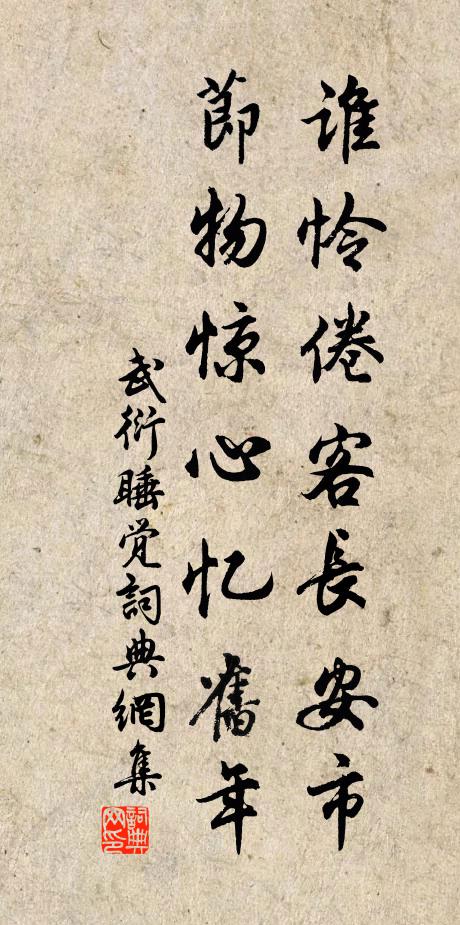 谁怜倦客長安市
節物惊心忆舊年
武衍睡觉詞典網集
詞典网印